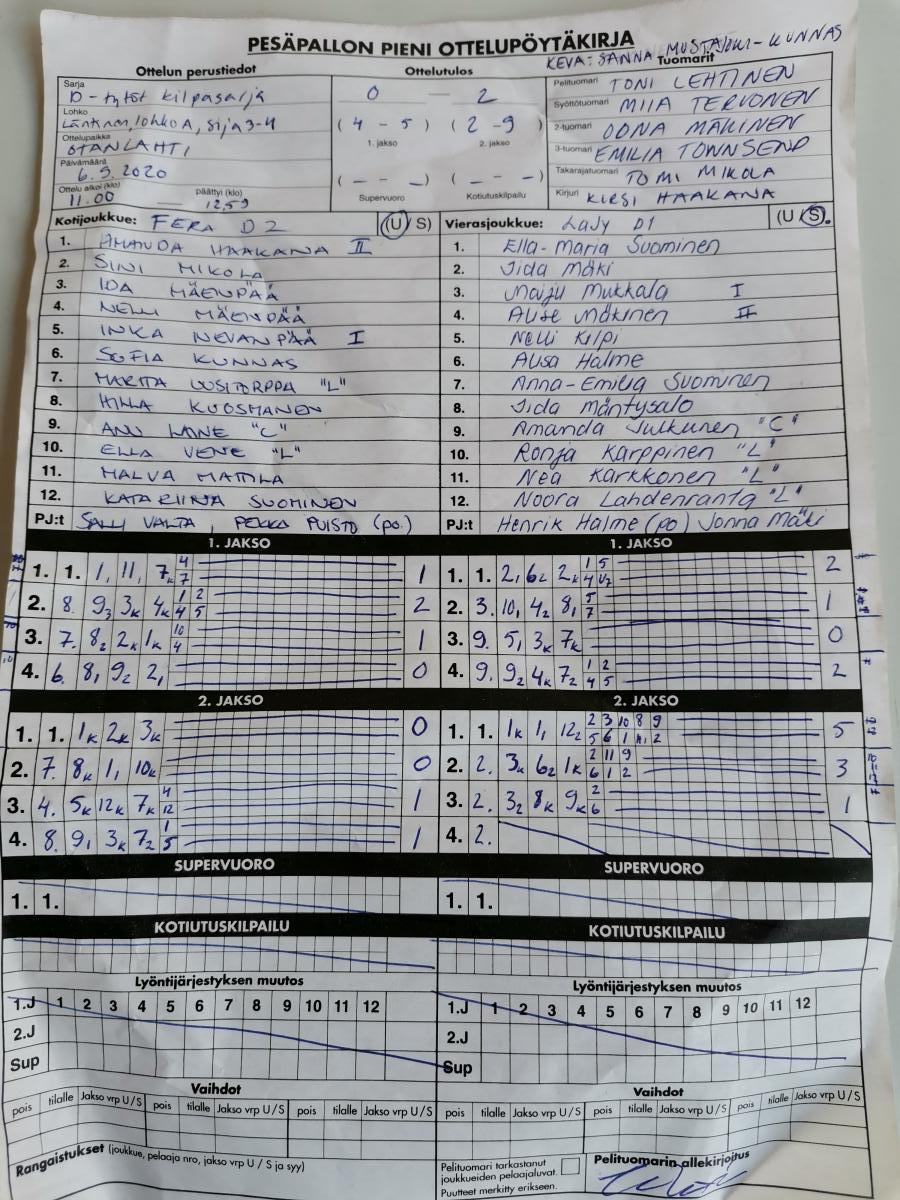 PESÄPALLON PIENI OTTELUPÖYTÄKIRJA
KEVA: SANNA MUSTAJOKI-KUNNAS
Ottelun perustiedot
Ottelutulos
Tuomarit
Sarja D-tytöt kilpasarja
0 – 2
Pelituomari TONI LEHTINEN
Lohko Läntinen, lohko A, sija 3-4
Syöttötuomari MIIA TERVONEN
Ottelupaikka OTANLAHTI
(4 – 5) (2 – 9)
2-tuomari OONA MÄKINEN
Päivämäärä 6.9.2020
1. jakso 2. jakso
3-tuomari EMILIA TOWNSEND
Ottelu alkoi (klo) 11.00 päättyi (klo) 12.59
(– – –) (– – –)
Takarajatuomari TOMI MIKOLA
Supervuoro Kotiutuskilpailu
Kirjuri KIRSI HAAKANA
Kotijoukkue: FERA D2 (U/S)
1. AMANDA HAAKANA II
2. SINI MIKOLA
3. IDA MÄENPÄÄ
4. NELLI MÄENPÄÄ
5. INKA NEVANPÄÄ I
6. SOFIA KUNNAS
7. MARITA UUSITORPPA "L"
8. HILLA KUOSMANEN
9. ANU LAINE "C"
10. ELLA VENE "L"
11. MALVA MATTILA
12. KATARIINA SUOMINEN
PJ:t SALLI VALTA, PEKKA PUISTO (po.)
Vierasjoukkue: LaJy D1 (U/S).
1. Ella-Maria Suominen
2. Iida Mäki
3. Maiju Mukkala I
4. Alise Mäkinen II
5. Nelli Kilpi
6. Alisa Halme
7. Anna-Emilia Suominen
8. Iida Mäntysalo
9. Amanda Julkunen "C"
10. Ronja Karppinen "L"
11. Nea Karkkonen "L"
12. Noora Lahdenranta "L"
PJ:t Henrik Halme (po) Jonna Mäki
1. JAKSO
1. 1. 1, 11, 7k 4/7 1
2. 8. 9₃ 3k 4k 1/4 2/5 2
3. 7. 8₂ 2k 1k 10/4 1
4. 6. 8, 9₂ 2, 0
1. JAKSO
1. 1. 2, 6₂ 2k 1/4 5/12 2
2. 3. 10, 4₂ 8, 5/7 1
3. 9. 5, 3k 7k 0
4. 9. 9₂ 4k 7₂ 1/4 2/5 2
2. JAKSO
1. 1. 1k 2k 3k 0
2. 7. 8k 1, 10k 0
3. 4. 5k 12k 7k 4/12 1
4. 8. 9, 3k 7₂ 1/5 1
2. JAKSO
1. 1. 1k 1, 12₂ 2/5 3/6 10/1 8/11 9/2 5
2. 2. 3k 6₂ 1k 2/6 11/1 9/2 3
3. 2. 3₂ 8k 9k 2/6 1
4. 2.
SUPERVUORO
1. 1.
SUPERVUORO
1. 1.
KOTIUTUSKILPAILU
KOTIUTUSKILPAILU
Lyöntijärjestyksen muutos
1.J 1 2 3 4 5 6 7 8 9 10 11 12
2.J
Sup
Lyöntijärjestyksen muutos
1.J 1 2 3 4 5 6 7 8 9 10 11 12
2.J
Sup
Vaihdot
pois tilalle Jakso vrp U/S pois tilalle Jakso vrp U/S pois tilalle Jakso vrp U/S
Vaihdot
pois tilalle Jakso vrp U/S pois tilalle Jakso vrp U/S pois tilalle Jakso vrp U/S
Rangaistukset (joukkue, pelaaja nro, jakso vrp U / S ja syy)
Pelituomari tarkastanut
joukkueiden pelaajaluvat.
Puutteet merkitty erikseen.
Pelituomarin allekirjoitus